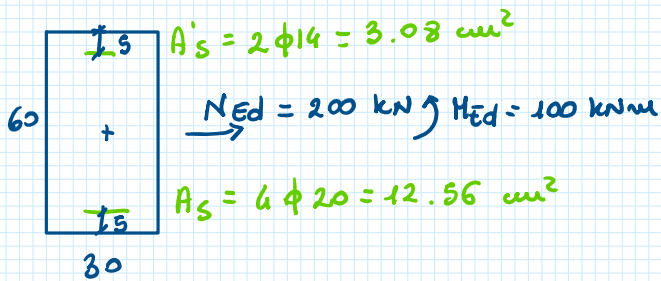 5 A's = 2ϕ14 = 3.08 cm²
60 NEd = 200 kN MEd = 100 kNm
As = 4ϕ20 = 12.56 cm²
5
30